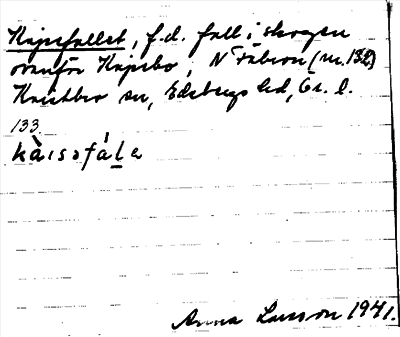 Kajsefallet, f.d. fall i skogen
ovanför Kajsbo, N Fäbron (nr. 132)
Knista sn, Edsbergs hd, Ör. l.
133.
kàɪsɔfálɐ
Anna Larsson 1941.